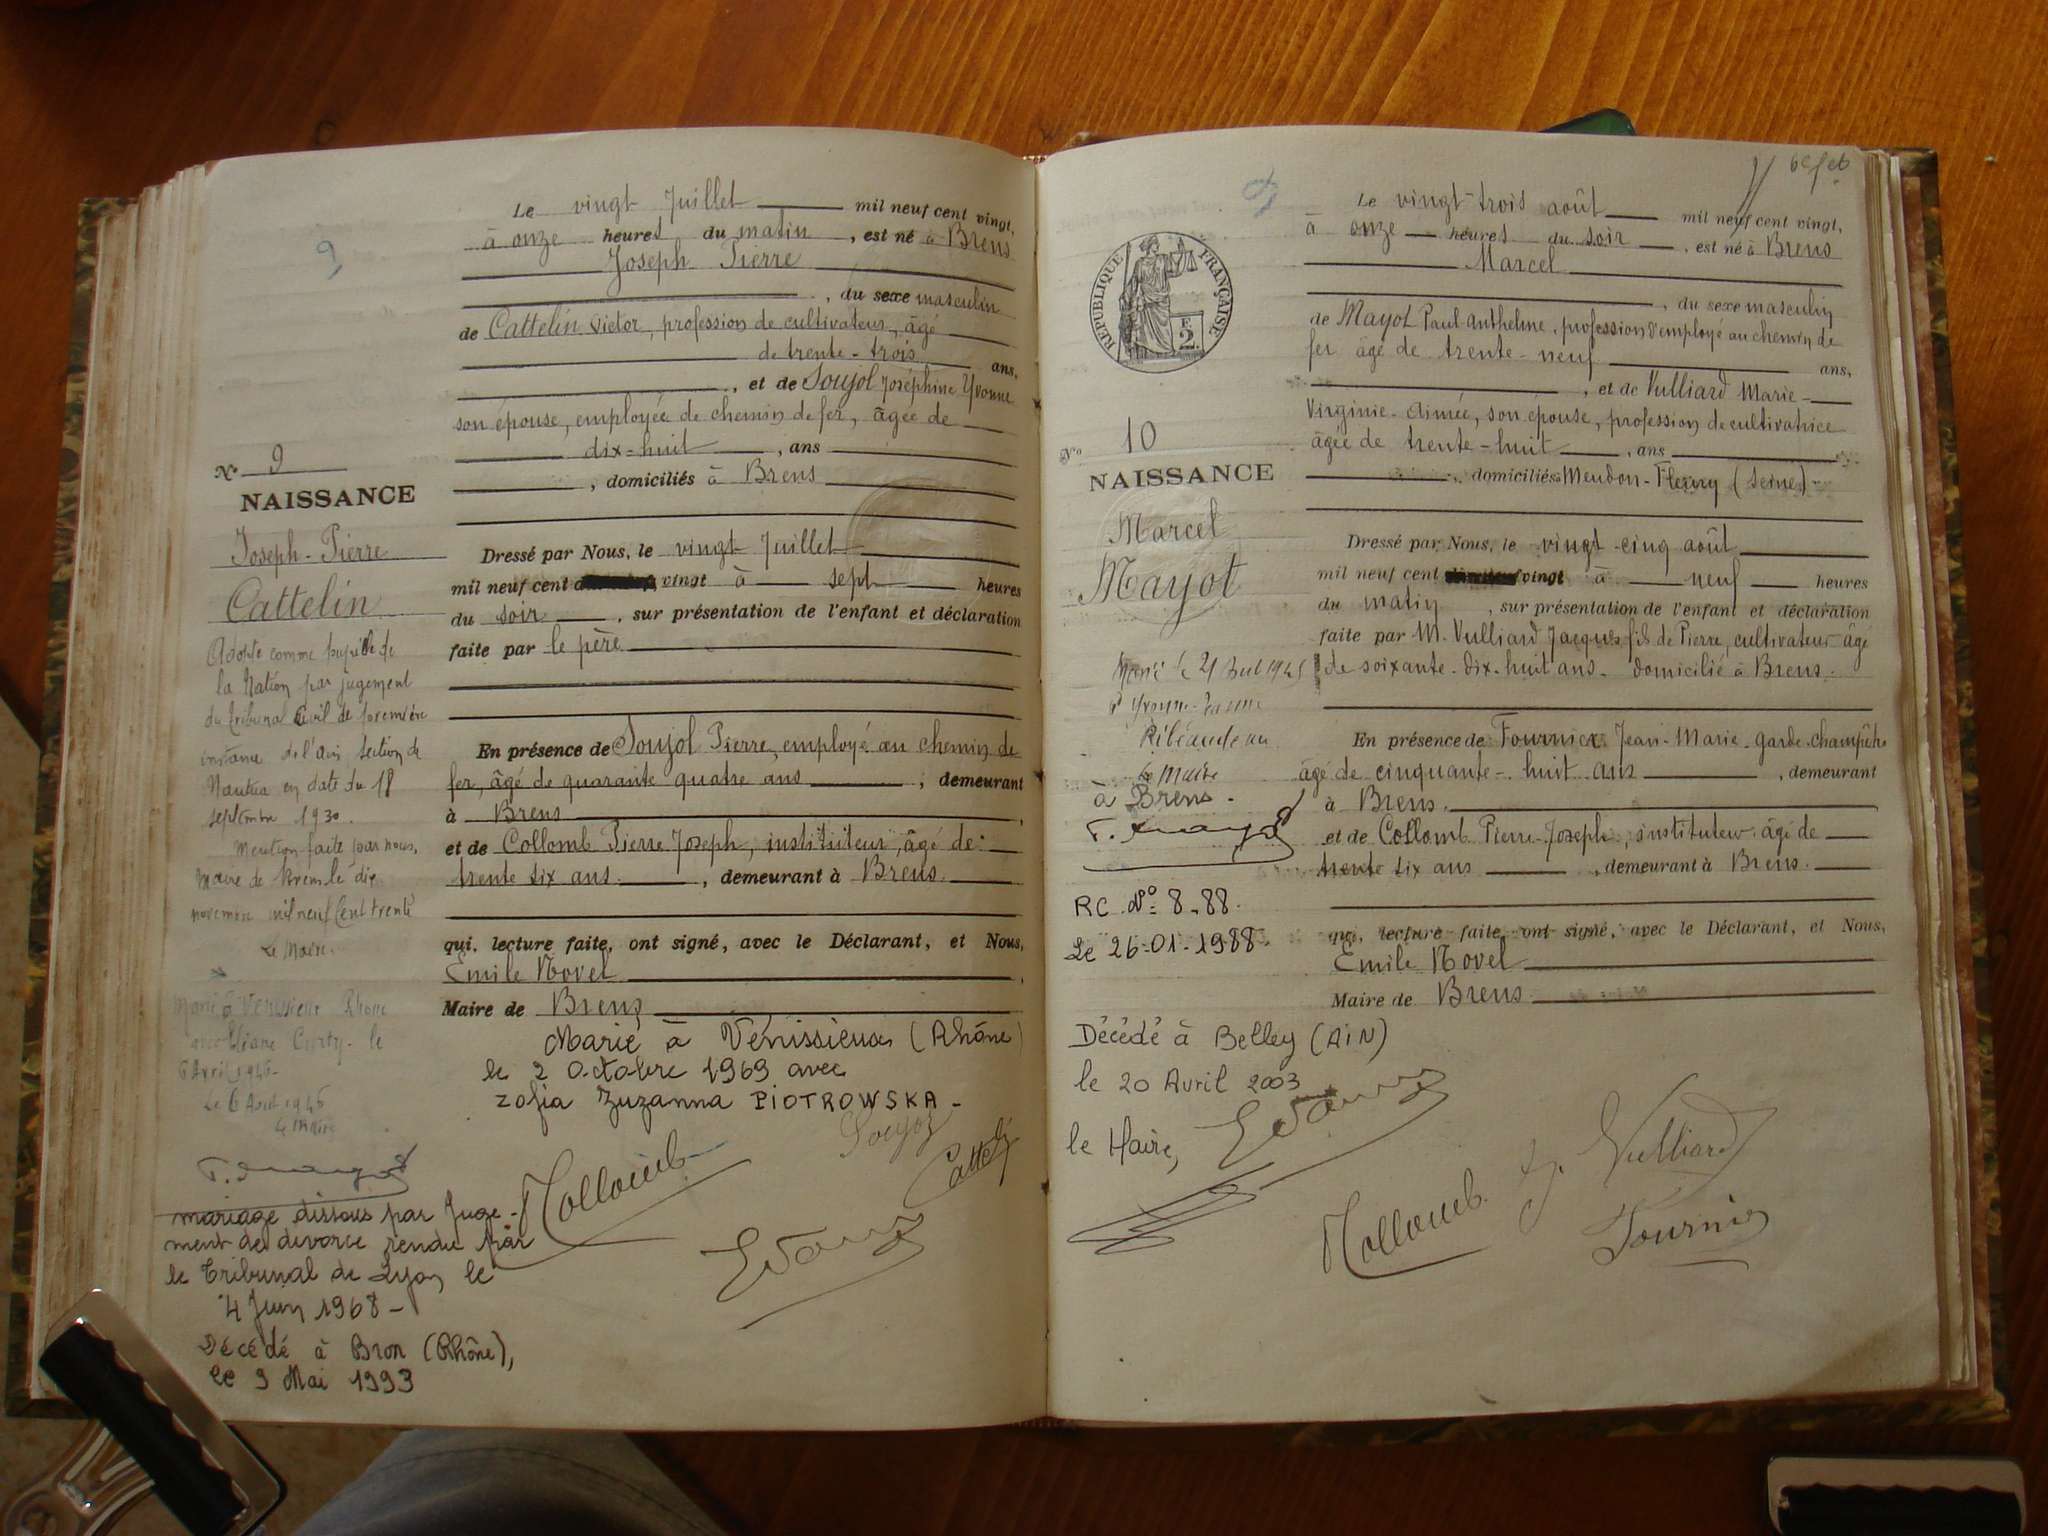 9
Le vingt Juillet mil neuf cent vingt,
à onze heures du matin, est né à Brens
Joseph Pierre
, du sexe masculin
de Cattelin Victor, profession de cultivateur, âgé
de trente-trois ans,
, et de Soujol Joséphine Yvonne
son épouse, employée de chemin de fer, âgée de
dix-huit, ans
, domiciliés à Brens
Dressé par Nous, le vingt Juillet
mil neuf cent vingt à sept heures
du soir, sur présentation de l'enfant et déclaration
faite par le père
En présence de Soujol Pierre, employé au chemin de
fer, âgé de quarante quatre ans, demeurant
à Brens,
et de Collomb Pierre Joseph, instituteur, âgé de
trente six ans, demeurant à Brens.
qui, lecture faite, ont signé, avec le Déclarant, et Nous,
Emile Novel,
Maire de Brens
Marié à Vénissieux (Rhône)
le 2 Octobre 1969 avec
Zofia Zuzanna PIOTROWSKA -
Soujol
Cattelin
Collomb
No 9
NAISSANCE
Joseph-Pierre
Cattelin
Adopté comme pupille de
la Nation par jugement
du tribunal Civil de première
instance de l'ain section de
Nantua en date du 18
septembre 1930.
Mention faite par nous,
Maire de Brens le dix
novembre mil neuf Cent trente
Le Maire.
Marié à Vénissieux Rhône
avec Curty le
6 Avril 1946
Le 6 Août 1946
Le Maire
mariage dissous par Juge-
ment de divorce rendu par
le Tribunal de Lyon le
4 Juin 1968 -
Décédé à Bron (Rhône),
le 9 Mai 1993
REPUBLIQUE FRANÇAISE
F.
2.
Le vingt-trois août mil neuf cent vingt,
à onze heures du soir, est né à Brens
Marcel
, du sexe masculin
de Mayot Paul Anthelme, profession d'employé au chemin de
fer âgé de trente-neuf ans,
, et de Vulliard Marie-
Virginie-Aimée, son épouse, profession de cultivatrice
âgée de trente-huit, ans
, domiciliés Meudon-Fleury (Seine)-
Dressé par Nous, le vingt-cinq août
mil neuf cent vingt à neuf heures
du matin, sur présentation de l'enfant et déclaration
faite par M. Vulliard Jacques fils de Pierre, cultivateur âgé
de soixante-dix-huit ans. domicilié à Brens.
En présence de Fournier Jean-Marie garde-champêtre
âgé de cinquante-huit ans, demeurant
à Brens.
et de Collomb Pierre-Joseph, instituteur âgé de
trente six ans, demeurant à Brens.
qui, lecture faite, ont signé, avec le Déclarant, et Nous,
Emile Novel
Maire de Brens
No 10
NAISSANCE
Marcel
Mayot
Marié le 21
Yvonne
Le Maire
à Brens.
RC No: 8-88.
Le 26-01-1988.
Décédé à Belley (AIN)
le 20 Avril 2003
le Maire,
Collomb
J. Vulliard
Fournier